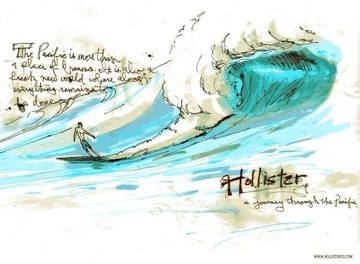 The Pacific is more than
a place of dreams. It is also a
fresh, new world where almost
everything remains to
be done
Hollister
a journey through the Pacific
WWW.HOLLISTERCO.COM